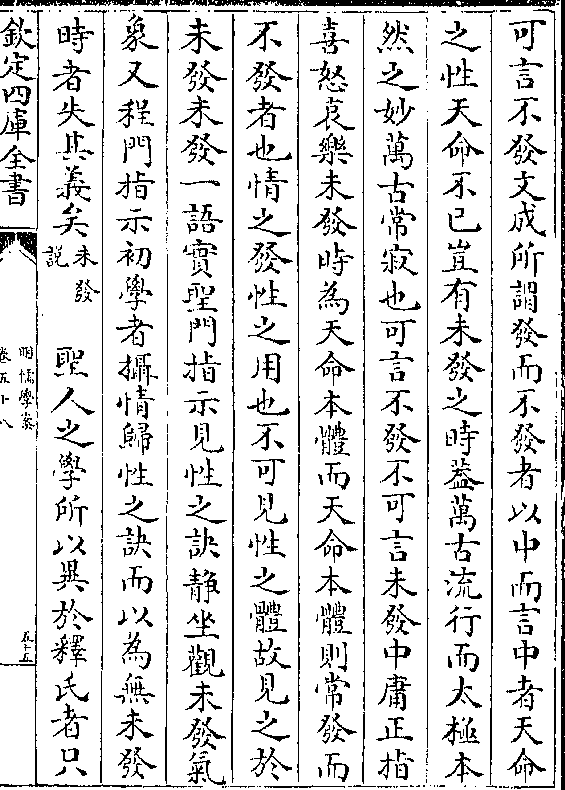 可言不發文成所謂發而不發者以中而言中者天命
之性天命不已豈有未發之時蓋萬古流行而太極本
然之妙萬古常寂也可言不發不可言未發中庸正指
喜怒哀樂未發時為天命本體而天命本體則常發而
不發者也情之發性之用也不可見性之體故見之於
未發未發一語實聖門指示見性之訣静坐觀未發氣
象又程門指示初學者攝情歸性之訣而以為無未發
時者失其義矣未發說 聖人之學所以異於釋氏者只
欽定四庫全書
明儒學案
卷五十八
五十五